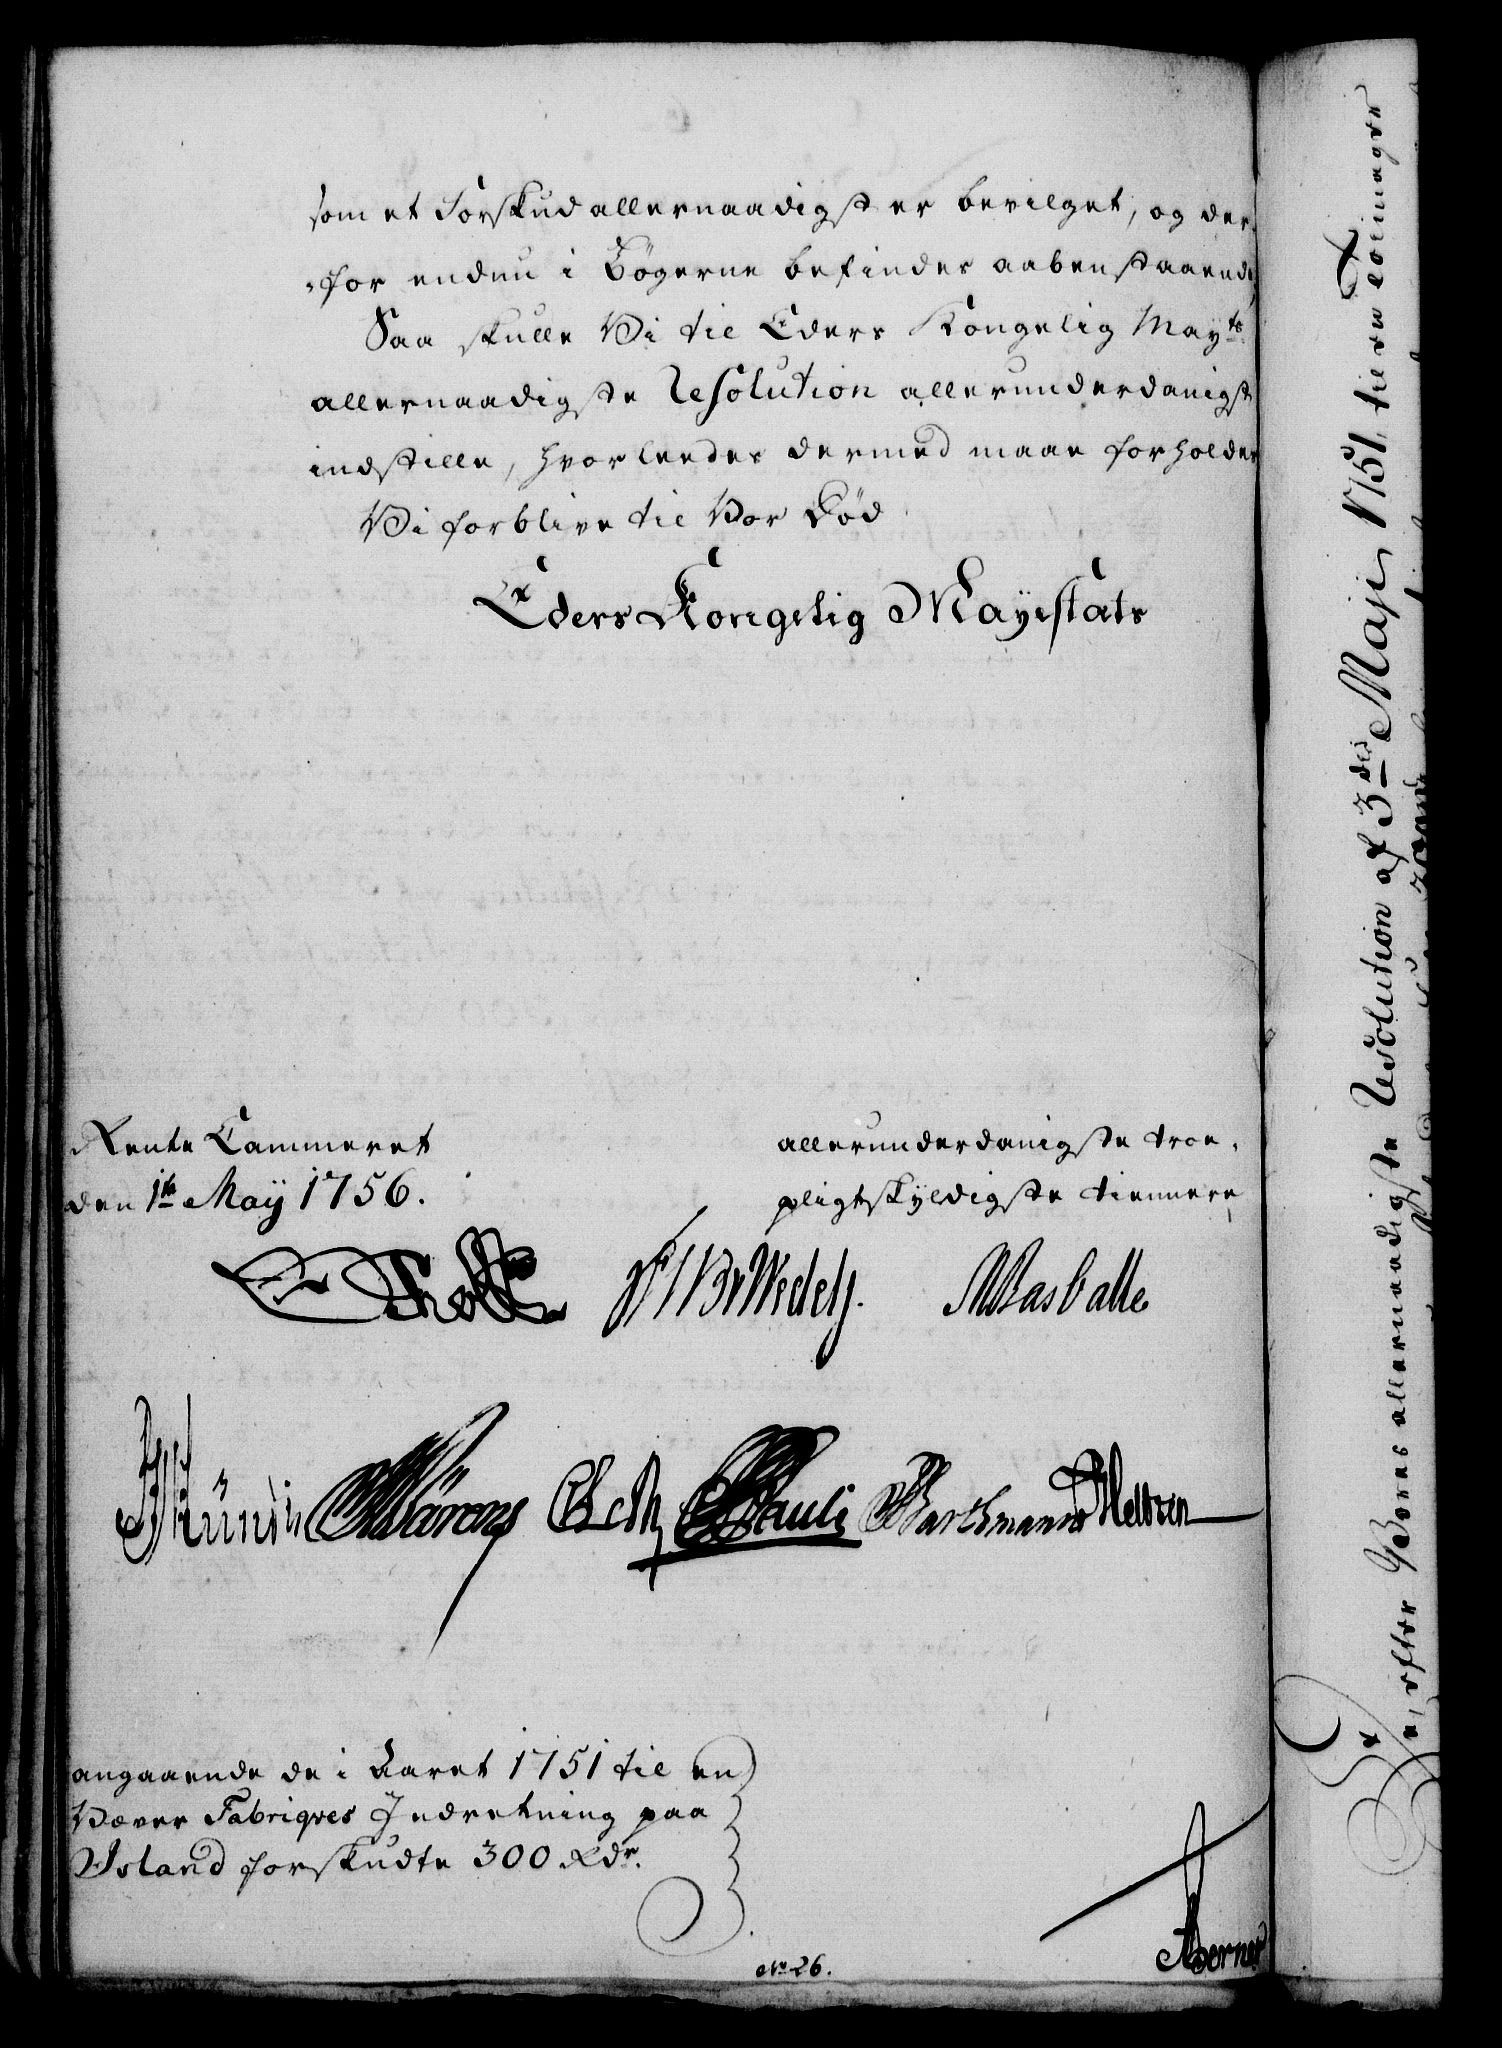 som et Forskud allernaadigst er bevilget, og der,
„for endnu i Bøgerne befindes aabenstaaende,
Saa skulle Vi til Eders Kongelig Mayts
allernaadigste Resolution allerunderdanigst
indstille, hvorleedes dermed maae forholdes
Vi forblive til Vor Død
Eders Kongelig Mayestäts
Rente Cammeret
den 1te Maÿ 1756.
allerunderdanigste troe,
pligtskÿldigste tiennere
Pauli
Barthmann
angaaende de i Aaret 1751 til en
Væver Fabriqves Indretning paa
Island forskudte 300 Rdr.
No 26.
efter Deres allernaadigste Resolution af 3die Maji 1751, til en